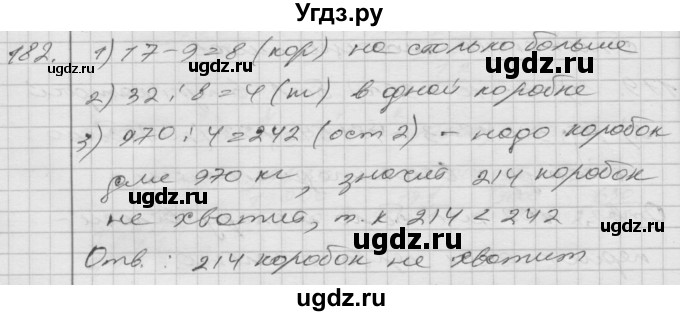 Угдз.ру
182. 1) 17-9=8 (кор) на столько больше
2) 32:8=4 (т) в одной коробке
3) 970:4=242 (ост 2) - надо коробок
для 970 кг, значит 214 коробок
не хватит, т.к. 214 < 242
Отв.: 214 коробок не хватит
ugdz.ru ugdz.ru
ugdz.ru
ugdz.ru
ugdz.ru
ugdz.ru